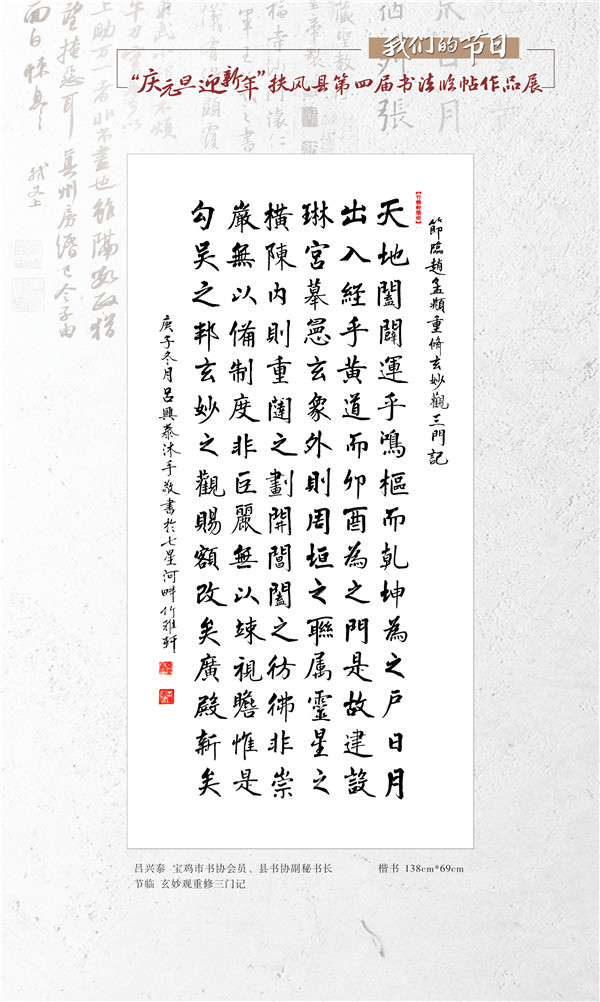 我们的节日
“庆元旦迎新年”扶风县第四届书法临帖作品展
節臨趙孟頫重脩玄妙觀三門記
天地闔闢運乎鴻樞而乾坤為之戶日月
出入經乎黃道而卯酉為之門是故建設
琳宮摹憲玄象外則周垣之聯属靈星之
橫陳内則重闥之劃開閶闔之彷彿非崇
嚴無以備制度非巨麗無以竦視瞻惟是
勾吴之邦玄妙之觀賜額改矣廣殿新矣
庚子冬月吕興泰沐手敬書於七星河畔竹雅軒
吕兴泰 宝鸡市书协会员、县书协副秘书长
楷书 138cm*69cm
节临 玄妙观重修三门记